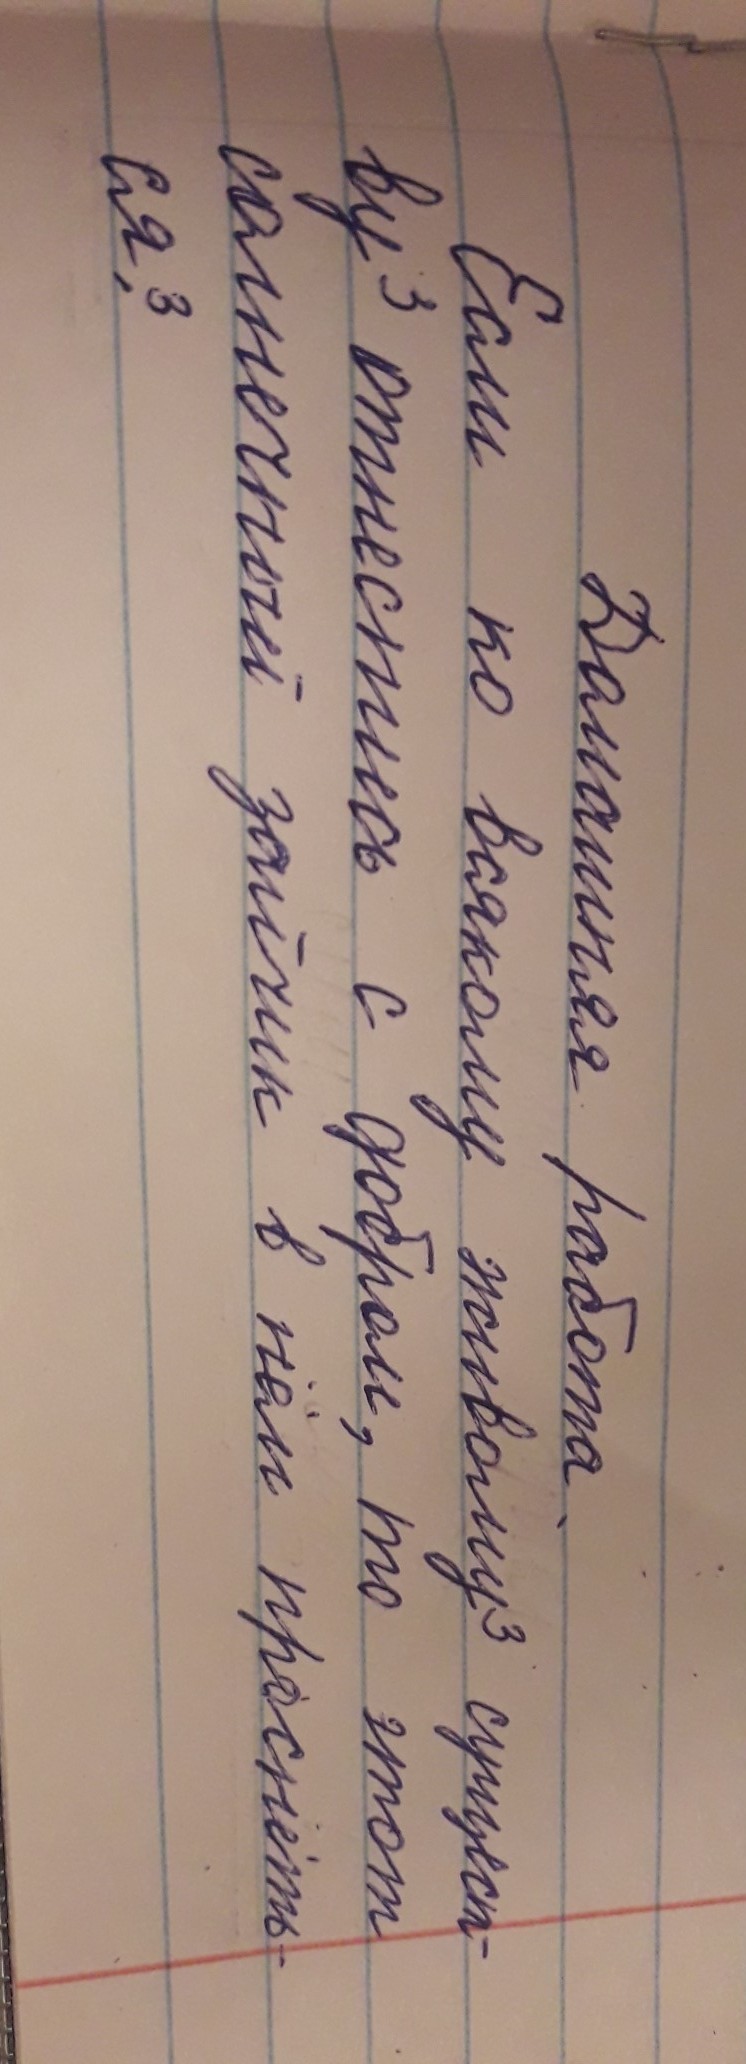 Домашняя работа.
Если ко всякому живому³ сущест-
ву³ отнестись с добром, то этот
солнечный зайчик в нём проснёть-
ся.³